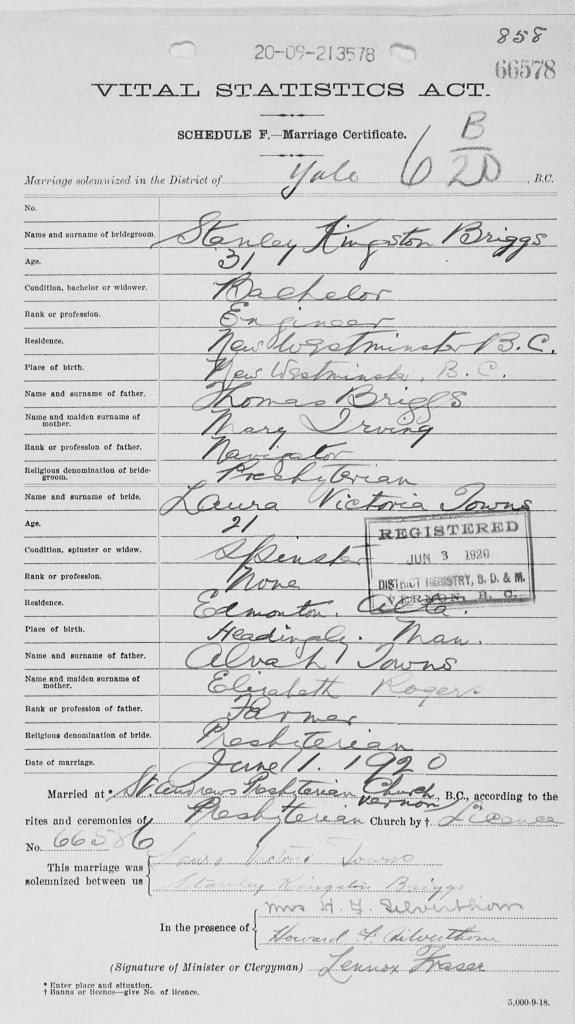 858
20-09-213578
66578
VITAL STATISTICS ACT.
SCHEDULE F.—Marriage Certificate.
B
6 20
Marriage solemnized in the District of Yale, B.C.
No.
Name and surname of bridegroom. Stanley Kingston Briggs
Age. 31
Condition, bachelor or widower. Bachelor
Rank or profession. Engineer
Residence. New Westminster B.C.
Place of birth. New Westminster, B.C.
Name and surname of father. Thomas Briggs
Name and maiden surname of mother. Mary Irving
Rank or profession of father. Navigator
Religious denomination of bridegroom. Presbyterian
Name and surname of bride. Laura Victoria Towns
Age. 21
Condition, spinster or widow. Spinster
Rank or profession. None
Residence. Edmonton. Alta.
Place of birth. Headingly. Man.
Name and surname of father. Alvah Towns
Name and maiden surname of mother. Elizabeth Rogers
Rank or profession of father. Farmer
Religious denomination of bride. Presbyterian
Date of marriage. June 1. 1920
REGISTERED
JUN 3 1920
DISTRICT REGISTRY, B. D. & M.
VERNON, B. C.
Married at * St. Andrews Presbyterian Church Vernon, B.C., according to the
rites and ceremonies of Presbyterian Church by † Licence
No. 66586
This marriage was solemnized between us
Laura Victoria Towns
Stanley Kingston Briggs
In the presence of
Mrs H. F. Silverthorn
Howard F Silverthorn
(Signature of Minister or Clergyman) Lennox Fraser
* Enter place and situation.
† Banns or licence—give No. of licence.
5,000-9-18.